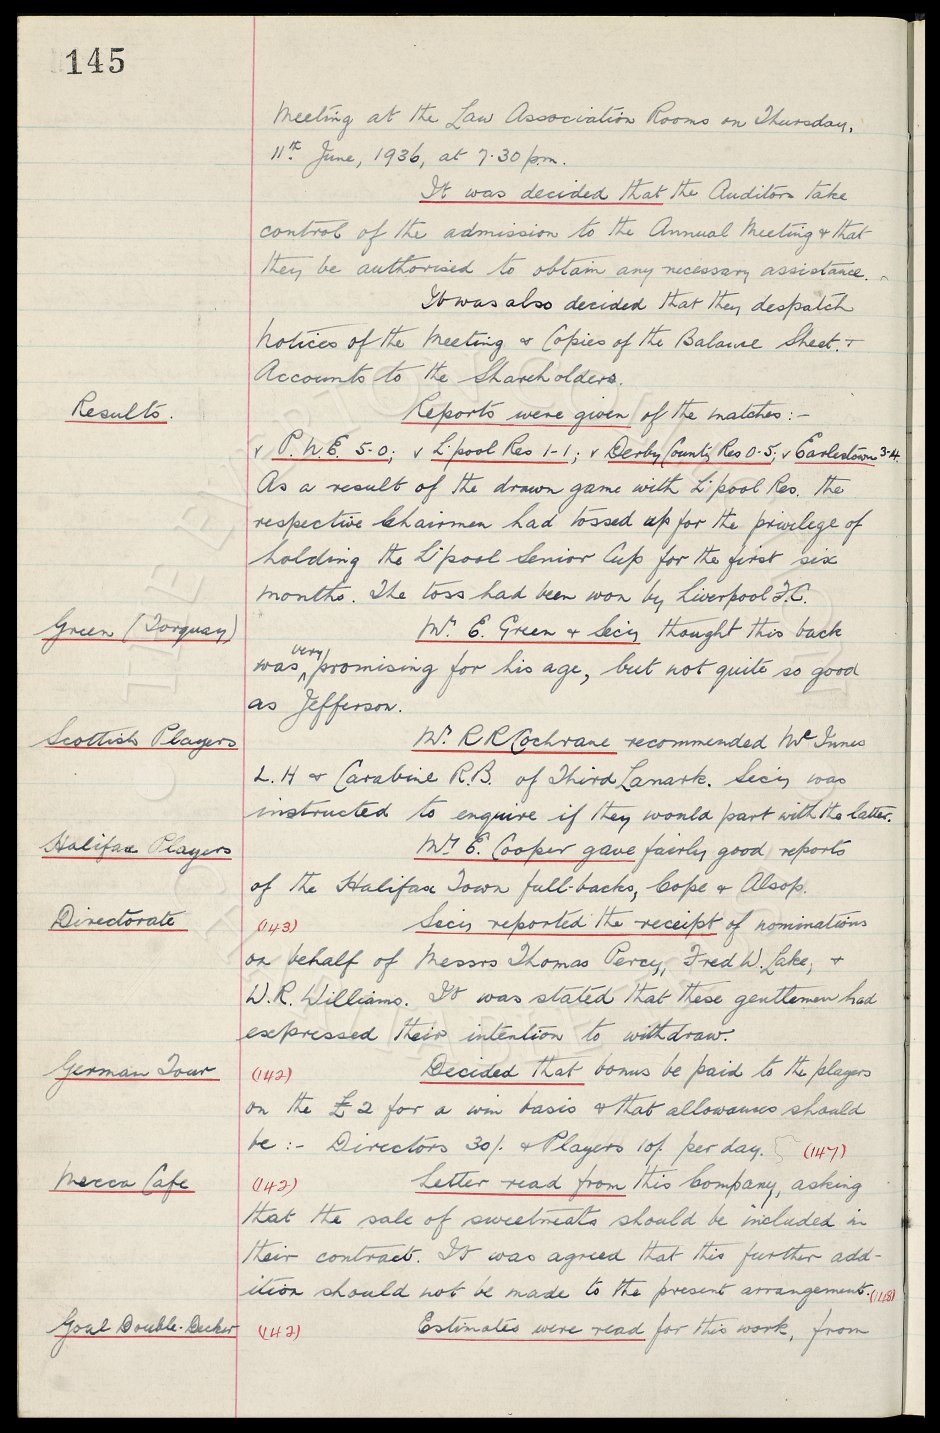 145
Meeting at the Law Association Rooms on Thursday,
11th June, 1936, at 7.30 p.m.
It was decided that the Auditors take
control of the admission to the Annual Meeting & that
they be authorised to obtain any necessary assistance.
It was also decided that they despatch
Notices of the Meeting & Copies of the Balance Sheet &
Accounts to the Shareholders.
Results. Reports were given of the matches:-
v P.N.E. 5-0; v L'pool Res 1-1; v Derby County Res 0-5; v Earlestown 3-4.
As a result of the drawn game with L'pool Res. the
respective Chairmen had tossed up for the privilege of
holding the L'pool Senior Cup for the first six
months. The toss had been won by Liverpool F.C.
Green (Torquay) Mr. E. Green & Secy thought this back
was very promising for his age, but not quite so good
as Jefferson.
Scottish Players Mr. R R Cochrane recommended McInnes
L.H & Carabine R.B. of Third Lanark. Secy was
instructed to enquire if they would part with the latter.
Halifax Players Mr E. Cooper gave fairly good reports
of the Halifax Town full-backs, Cope & Alsop.
Directorate (143) Secy reported the receipt of nominations
on behalf of Messrs Thomas Percy, Fred W. Lake, &
W.R. Williams. It was stated that these gentlemen had
expressed their intention to withdraw.
German Tour (142) Decided that bonus be paid to the players
on the £2 for a win basis & that allowances should
be:- Directors 30/- & Players 10/- per day. (147)
Mecca Cafe (142) Letter read from this Company, asking
that the sale of sweetmeats should be included in
their contract. It was agreed that this further add-
ition should not be made to the present arrangement. (148)
Goal Double-Decker (142) Estimates were read for this work, from